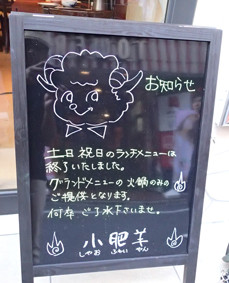 お知らせ
土日祝日のランチメニューは
終了いたしました。
グランドメニューの火鍋のみの
ご提供となります。
何卒ご了承下さいませ。
小肥羊
しゃお ふぇい やん